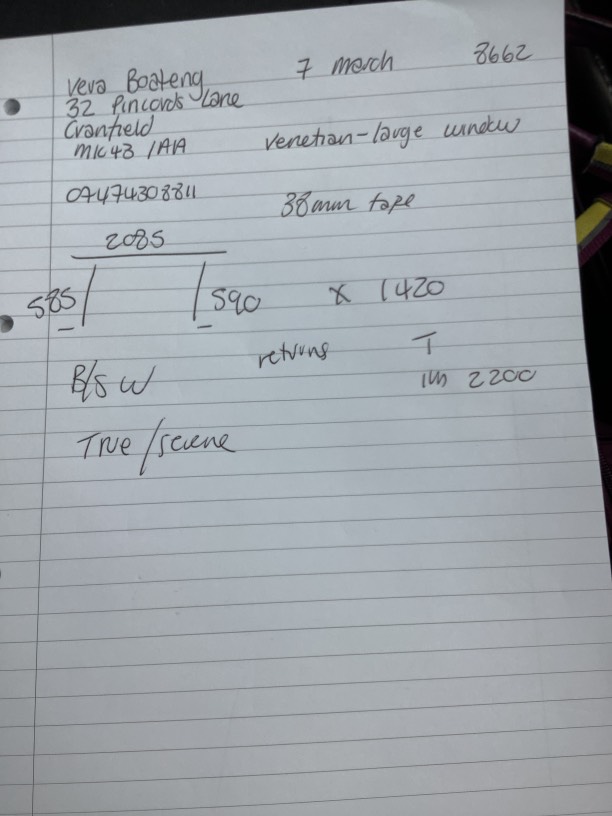 Vera Boateng 7 march 8662
32 Pincords Lane
Cranfield
MK43 1AA venetian-large window
07474308811 38mm tape
2085
585 590 x 1420
returns T
B/S W 2200
True/scene